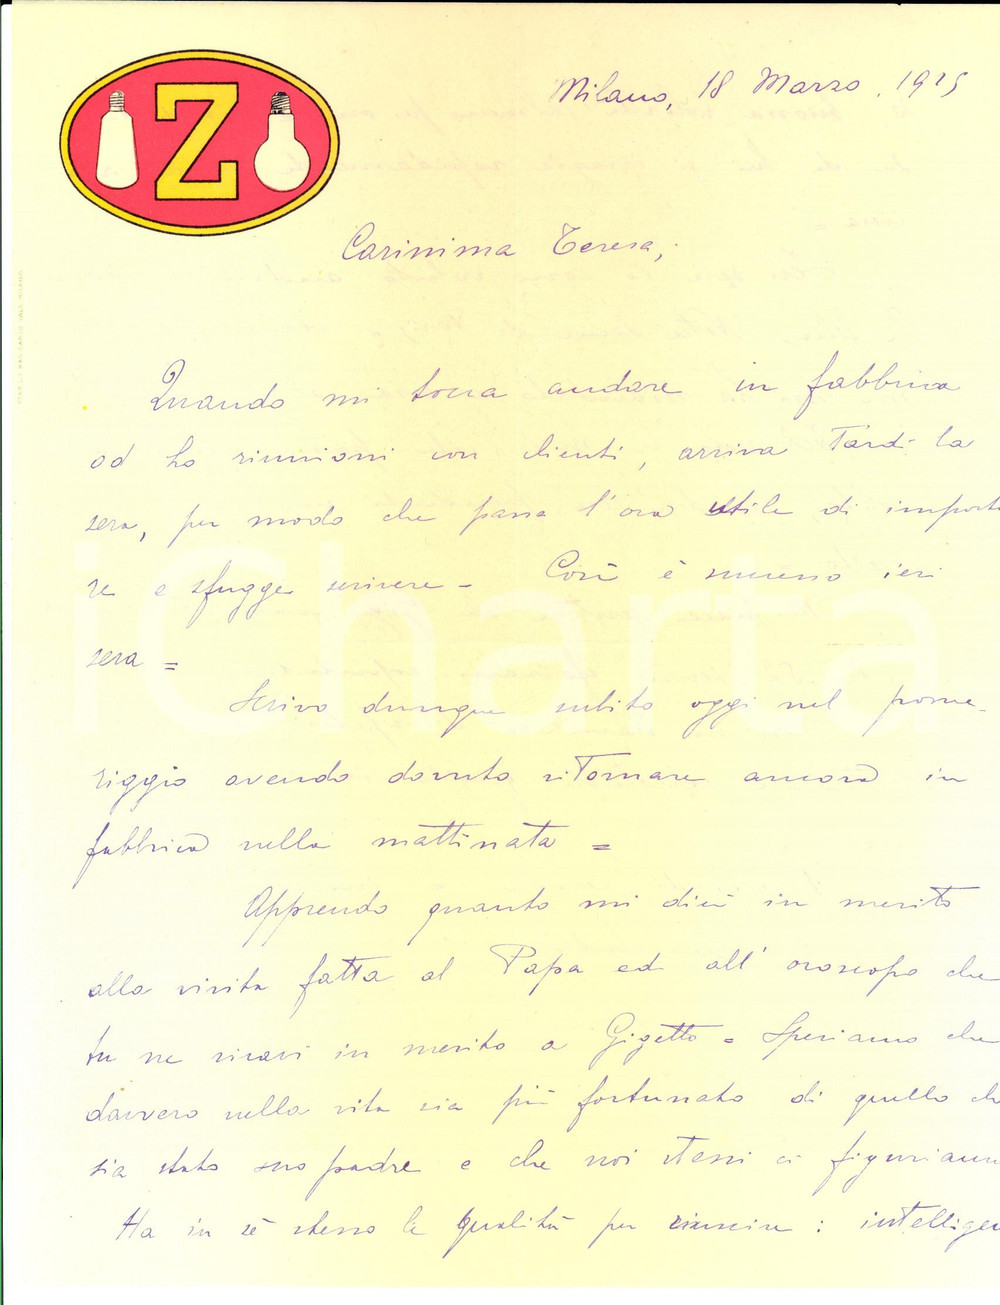 Z
Milano, 18 Marzo. 1925
Carissima Teresa,
Quando mi tocca andare in fabbrica
od ho riunioni con clienti, arriva tardi la
sera, per modo che passa l'ora utile di imposta
re e sfugge scrivere - Così è successo ieri
sera =
Scrivo dunque subito oggi nel pome-
riggio avendo dovuto ritornare ancora in
fabbrica nella mattinata =
Apprendo quanto mi dici in merito
alla visita fatta al Papa ed all'oroscopo che
tu ne ricavi in merito a Gigetto = Speriamo che
davvero nella vita sia più fortunato di quello ch
sia stato suo padre e che noi stessi ci figuriamo
Ha in sè stesso le qualità per riuscire: intelligen
iCharta